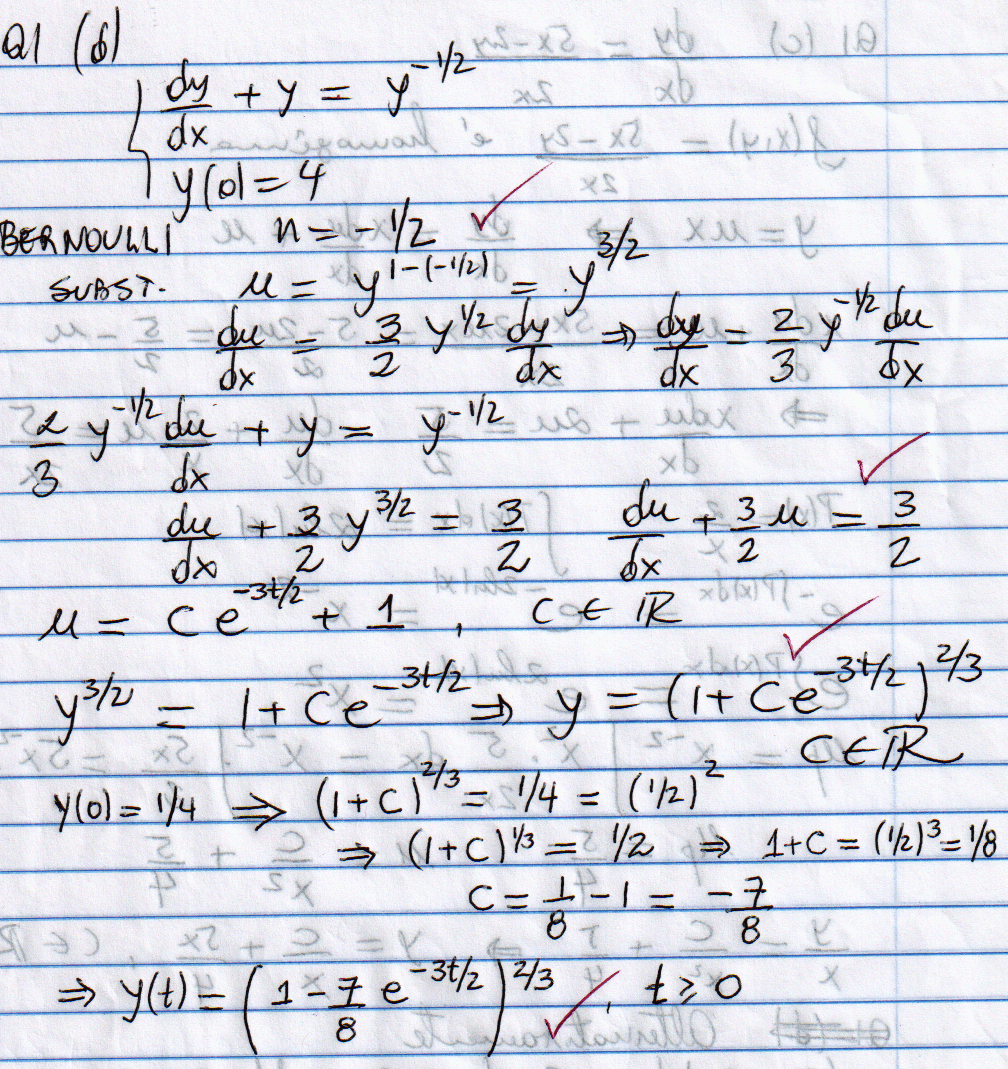 Q1 (b)
dy/dx + y = y^{-1/2}
y(0) = 4
BERNOULLI n = -1/2
SUBST. u = y^{1-(-1/2)} = y^{3/2}
du/dx = 3/2 y^{1/2} dy/dx ⇒ dy/dx = 2/3 y^{-1/2} du/dx
2/3 y^{-1/2} du/dx + y = y^{-1/2}
du/dx + 3/2 y^{3/2} = 3/2 du/dx + 3/2 u = 3/2
u = C e^{-3t/2} + 1, C ∈ ℝ
y^{3/2} = 1 + C e^{-3t/2} ⇒ y = (1 + C e^{-3t/2})^{2/3}
C ∈ ℝ
y(0) = 1/4 ⇒ (1 + C)^{2/3} = 1/4 = (1/2)^2
⇒ (1 + C)^{1/3} = 1/2 ⇒ 1 + C = (1/2)^3 = 1/8
C = 1/8 - 1 = -7/8
⇒ y(t) = (1 - 7/8 e^{-3t/2})^{2/3}, t ≥ 0